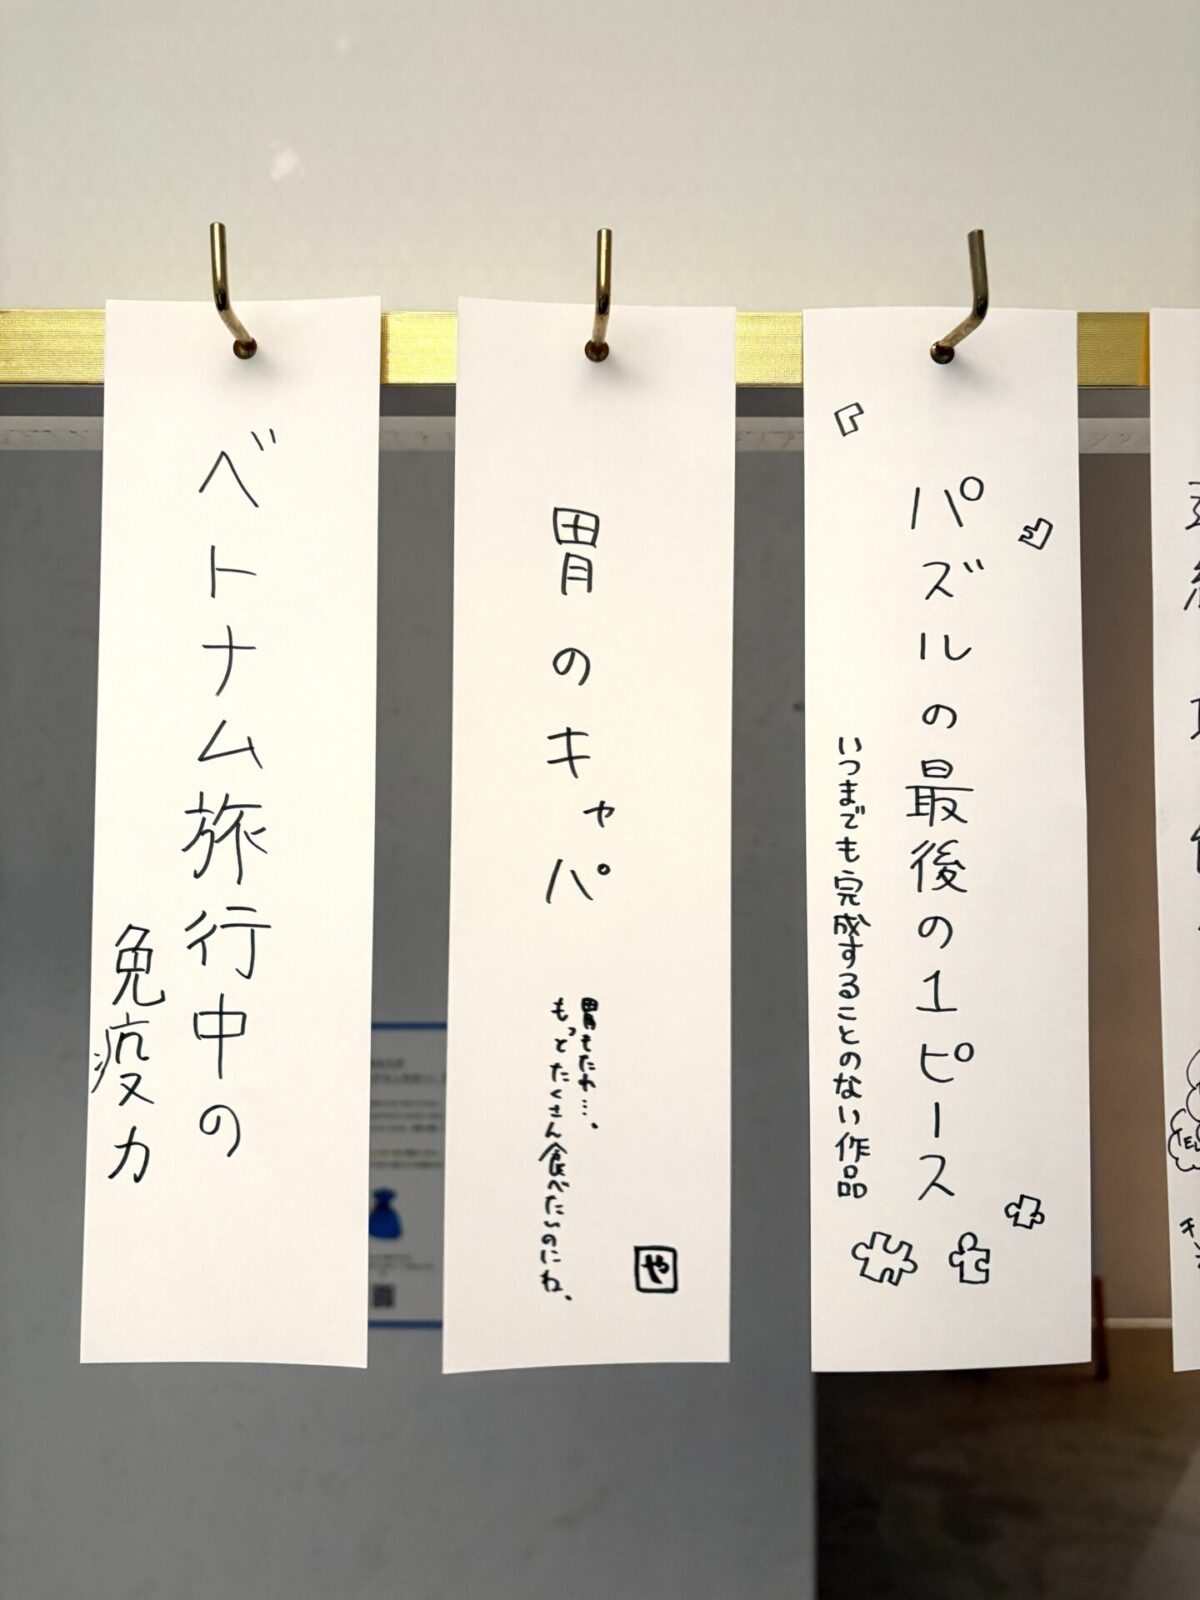 ベトナム旅行中の
免疫力
胃のキャパ
胃もたれ…、
もっとたくさん食べたいのにね、
や
パズルの最後の1ピース
いつまでも完成することのない作品